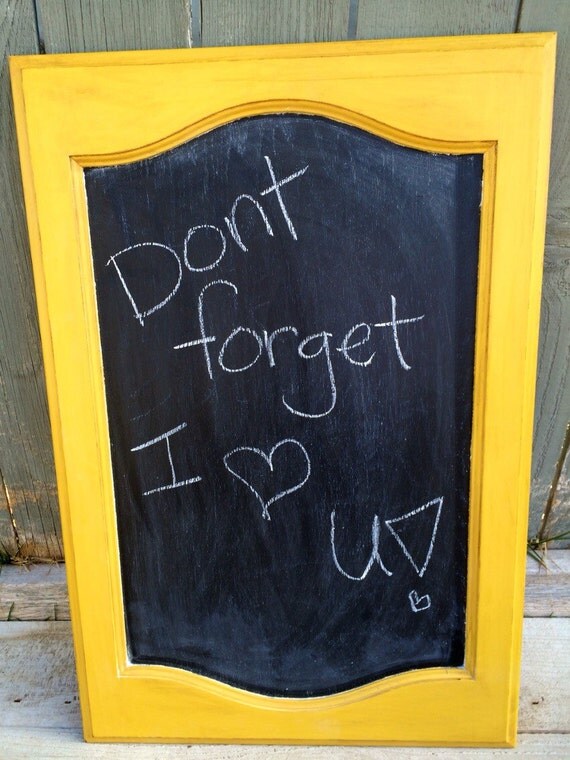 Dont
forget
I ♡
u!